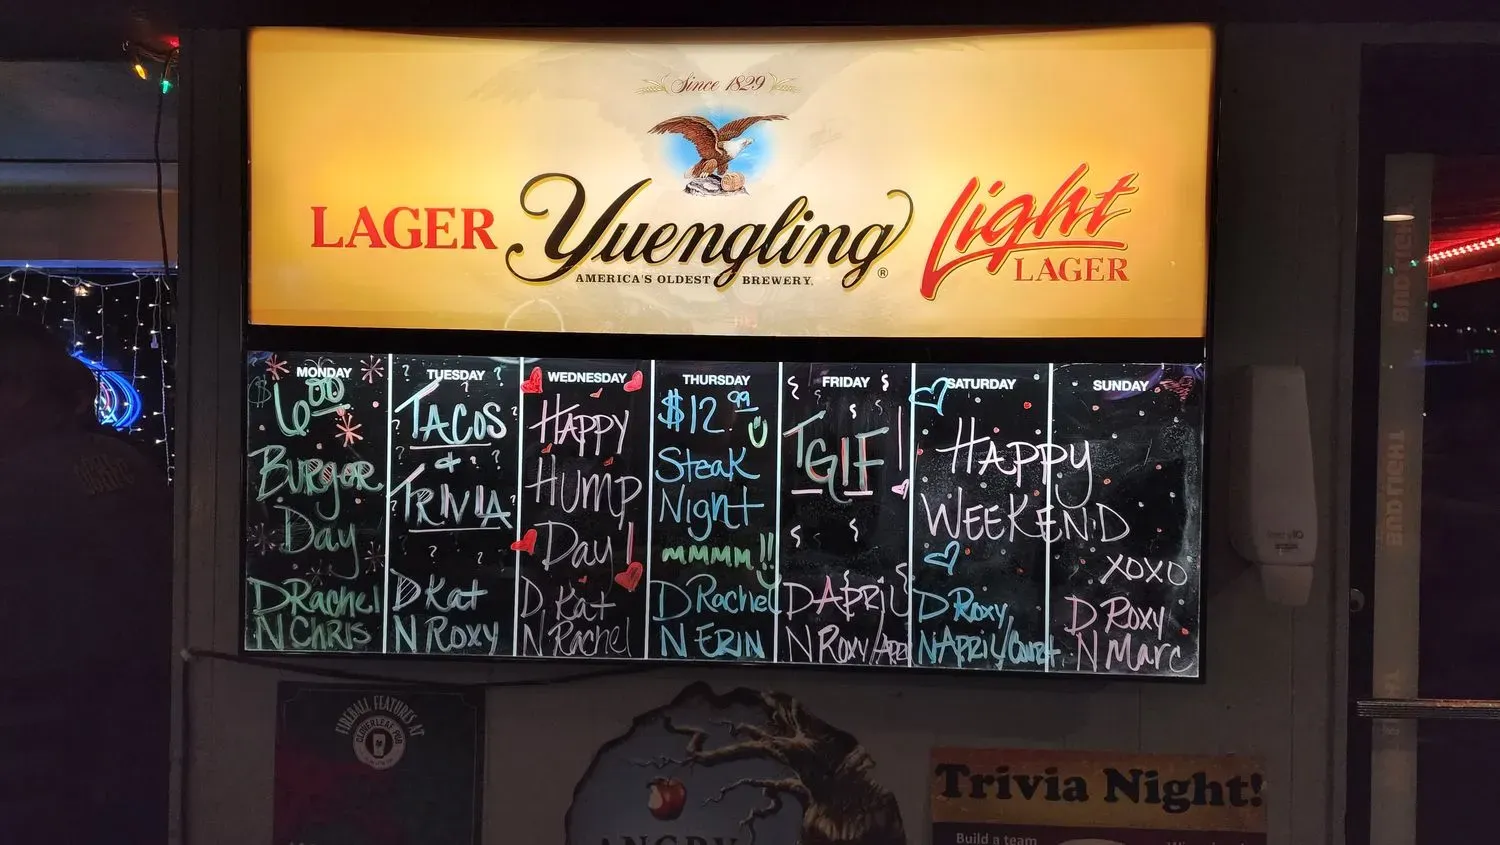 Since 1829
LAGER Yuengling® Light
AMERICA'S OLDEST BREWERY.
LAGER
MONDAY
$6.00
Burger
Day
D Rachel
N CHRIS
TUESDAY
TACOS
+
TRIVIA
D Kat
N Roxy
WEDNESDAY
HAPPY
HUMP
Day!
D. Kat
N Rachel
THURSDAY
$12.99
Steak
Night
mmmm!!
D Rachel
N ERIN
FRIDAY
TGIF!
D APRIL
N ROXY/APRI
SATURDAY SUNDAY
HAPPY
WEEKEND
XOXO
D Roxy
N APRIL/Court
D Roxy
N Marc
FIREBALL FEATURES AT
CLOVERLEAF PUB
ANGRY
Trivia Night!
Build a team
BUD LIGHT
BUD LIGHT